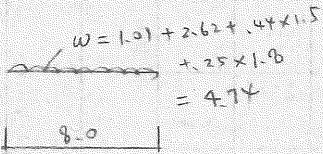 w = 1.01 + 2.62 + .44 x 1.5
+ .25 x 1.8
= 4.74
8.0